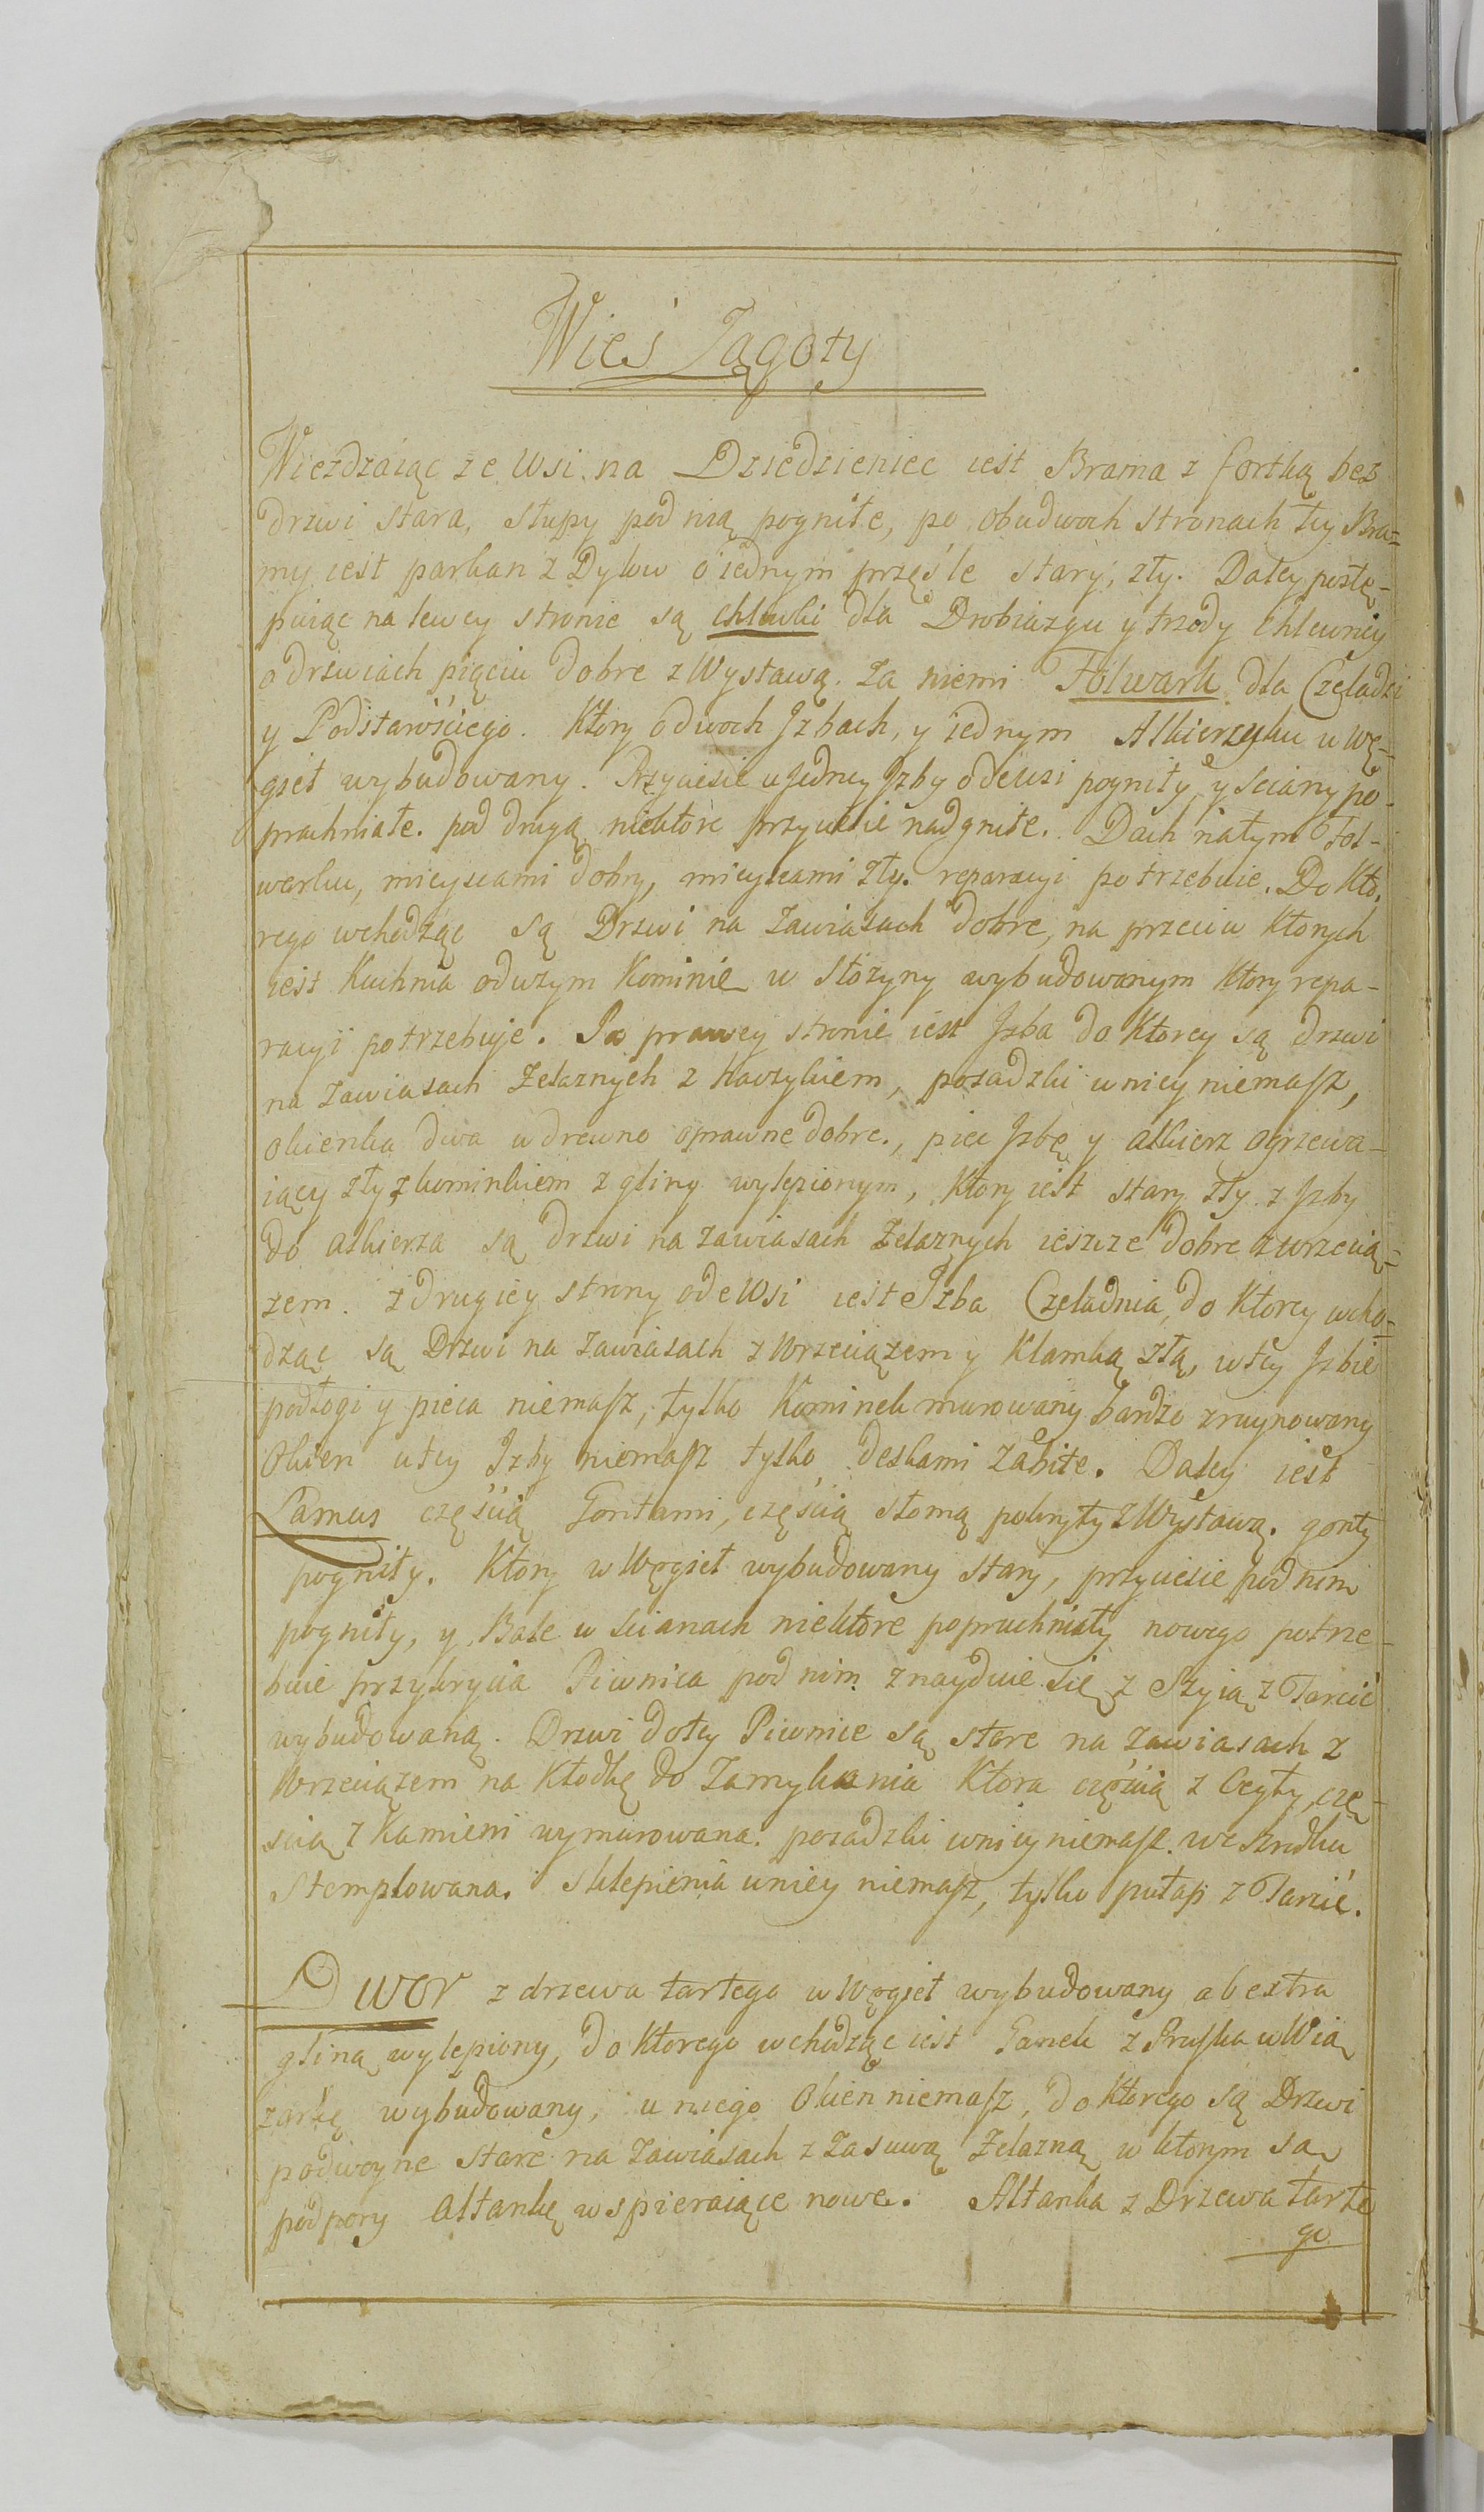 Wieś Jągoty
Wieżdzaiąc ze Wsi na Dziedzieniec iest Brama z fortką bez
drzwi stara, słupy pod nią pogniłe, po obudwoch stronach tey Bra=
my iest parkan z Dylow o iednym przęśle stary, zły. Daley postę-
puiąc na lewey stronie są chlewki dla Drobiazgu y trzody Chlewney
o drzwiach pięciu dobre z Wystawą. Za niemi Folwark dla Czeladzi
y Podstarościego. Ktory o dwoch Jzbach, y iednym Alkierzyku w Wę-
gieł wybudowany. Przyciesie u Jedney Jzby odewsi pogniły, y sciany po-
prachniałe. pod drugą niektore przyciesie nadgniłe. Dach natym Fol-
warku, mieyscami dobry, mieyscami zły. reparacyi potrzebuie. Do Kto-
rego wchodząc są Drzwi na Zawiasach dobre, na przeciw Ktorych
iest Kuchnia o dużym Kominie w Stożyny wybudowanym Ktory repa-
racyi potrzebuje. Po prawey stronie iest Jzba do Ktorey są drzwi
na Zawiasach Zelaznych z haczykiem, posadzki w niey niemasz,
okienka dwa w drewno oprawne dobre., piec Jzbę y alkierz ogrzewa-
iący zły z kominkiem z gliny wylepionym, Ktory iest stary zły. z Jzby
do alkierza są drzwi na zawiasach Zelaznych ieszcze dobre z wrzecią-
zem. z drugiey strony ode Wsi iest Jzba Czeladnia, do Ktorey wcho-
dząc są Drzwi na zawiasach z Wrzeciązem y Klamką złą, w tey Jzbie
podłogi y pieca niemasz, tylko Kominek murowany bardzo zruynowany
Okien u tey Jzby niemasz tylko deskami zabite. Daley iest
Lamus częścią Gontami, częścią słomą pokryty z Wystawą. gonty
pogniły. Ktory w Węgieł wybudowany stary, przyciesie pod nim
pogniły, y Bale w scianach niektore popruchniały nowego potrze-
buie przykrycia Piwnica pod nim znayduie się z Szyią z Tarcic
wybudowaną. Drzwi do tey Piwnice są stare na zawiasach z
Wrzeciązem na Kłodkę do Zamykania Ktora częścią z Cegły, czę-
scią z Kamieni wymurowana. posadzki w niey niemasz. we szrodku
Stemplowana. Sklepienia w niey niemasz, tylko pułap z Tarcic.
Dwor z drzewa tartego w Węgieł wybudowany ab extra
gliną wylepiony, do Ktorego wchodząc iest Ganek z Pruska w Wią
zarkę wybudowany, u niego Okien niemasz, do Ktorego są Drzwi
podwoyne stare na Zawiasach z Zasuwą Zelazną w ktorym są
podpory Altankę wspieraiące nowe. Altanka z Drzewa tarte
go